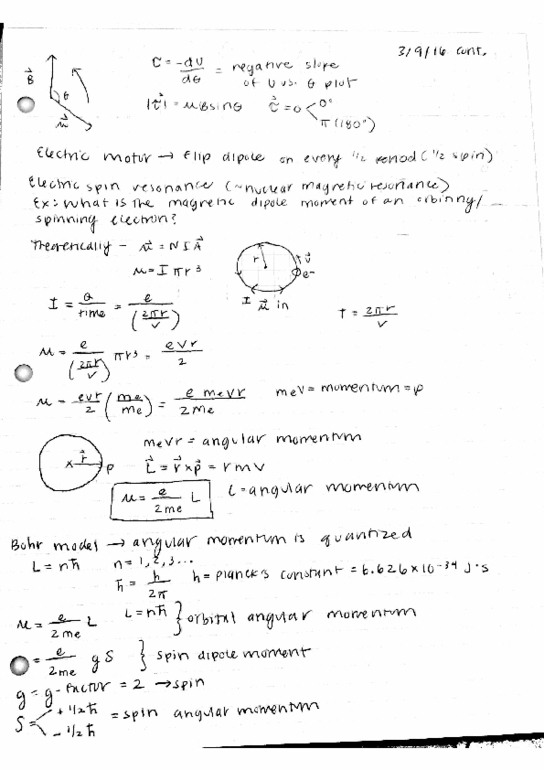 3/9/16 cont.
τ = -dU/dθ = negative slope of U vs. θ plot
B θ μ
|τ| = μBsinθ τ = 0 < 0° π (180°)
Electric motor → Flip dipole on every 1/2 period (1/2 spin)
Electric spin resonance (~nuclear magnetic resonance)
Ex: What is the magnetic dipole moment of an orbinny/
spinning electron?
Theoretically - μ = NIA
μ = I πr³
r v e-
I μ in
I = Q/time = e/(2πr/v)
t = 2πr/v
μ = e/(2πr/v) πr³ = evr/2
μ = evr/2 (me/me) = e mevr/2me mev = momentum = p
mevr = angular momentum
r p L = r × p = rmv
μ = e/2me L L = angular momentum
Bohr model → angular momentum is quantized
L = nħ n = 1, 2, 3...
ħ = h/2π h = planck's constant = 6.626 × 10⁻³⁴ J·s
μ = e/2me L L = nħ } orbital angular momentum
= e/2me gS } spin dipole moment
g = g-factor = 2 → spin
S = < +1/2ħ -1/2ħ = spin angular momentum